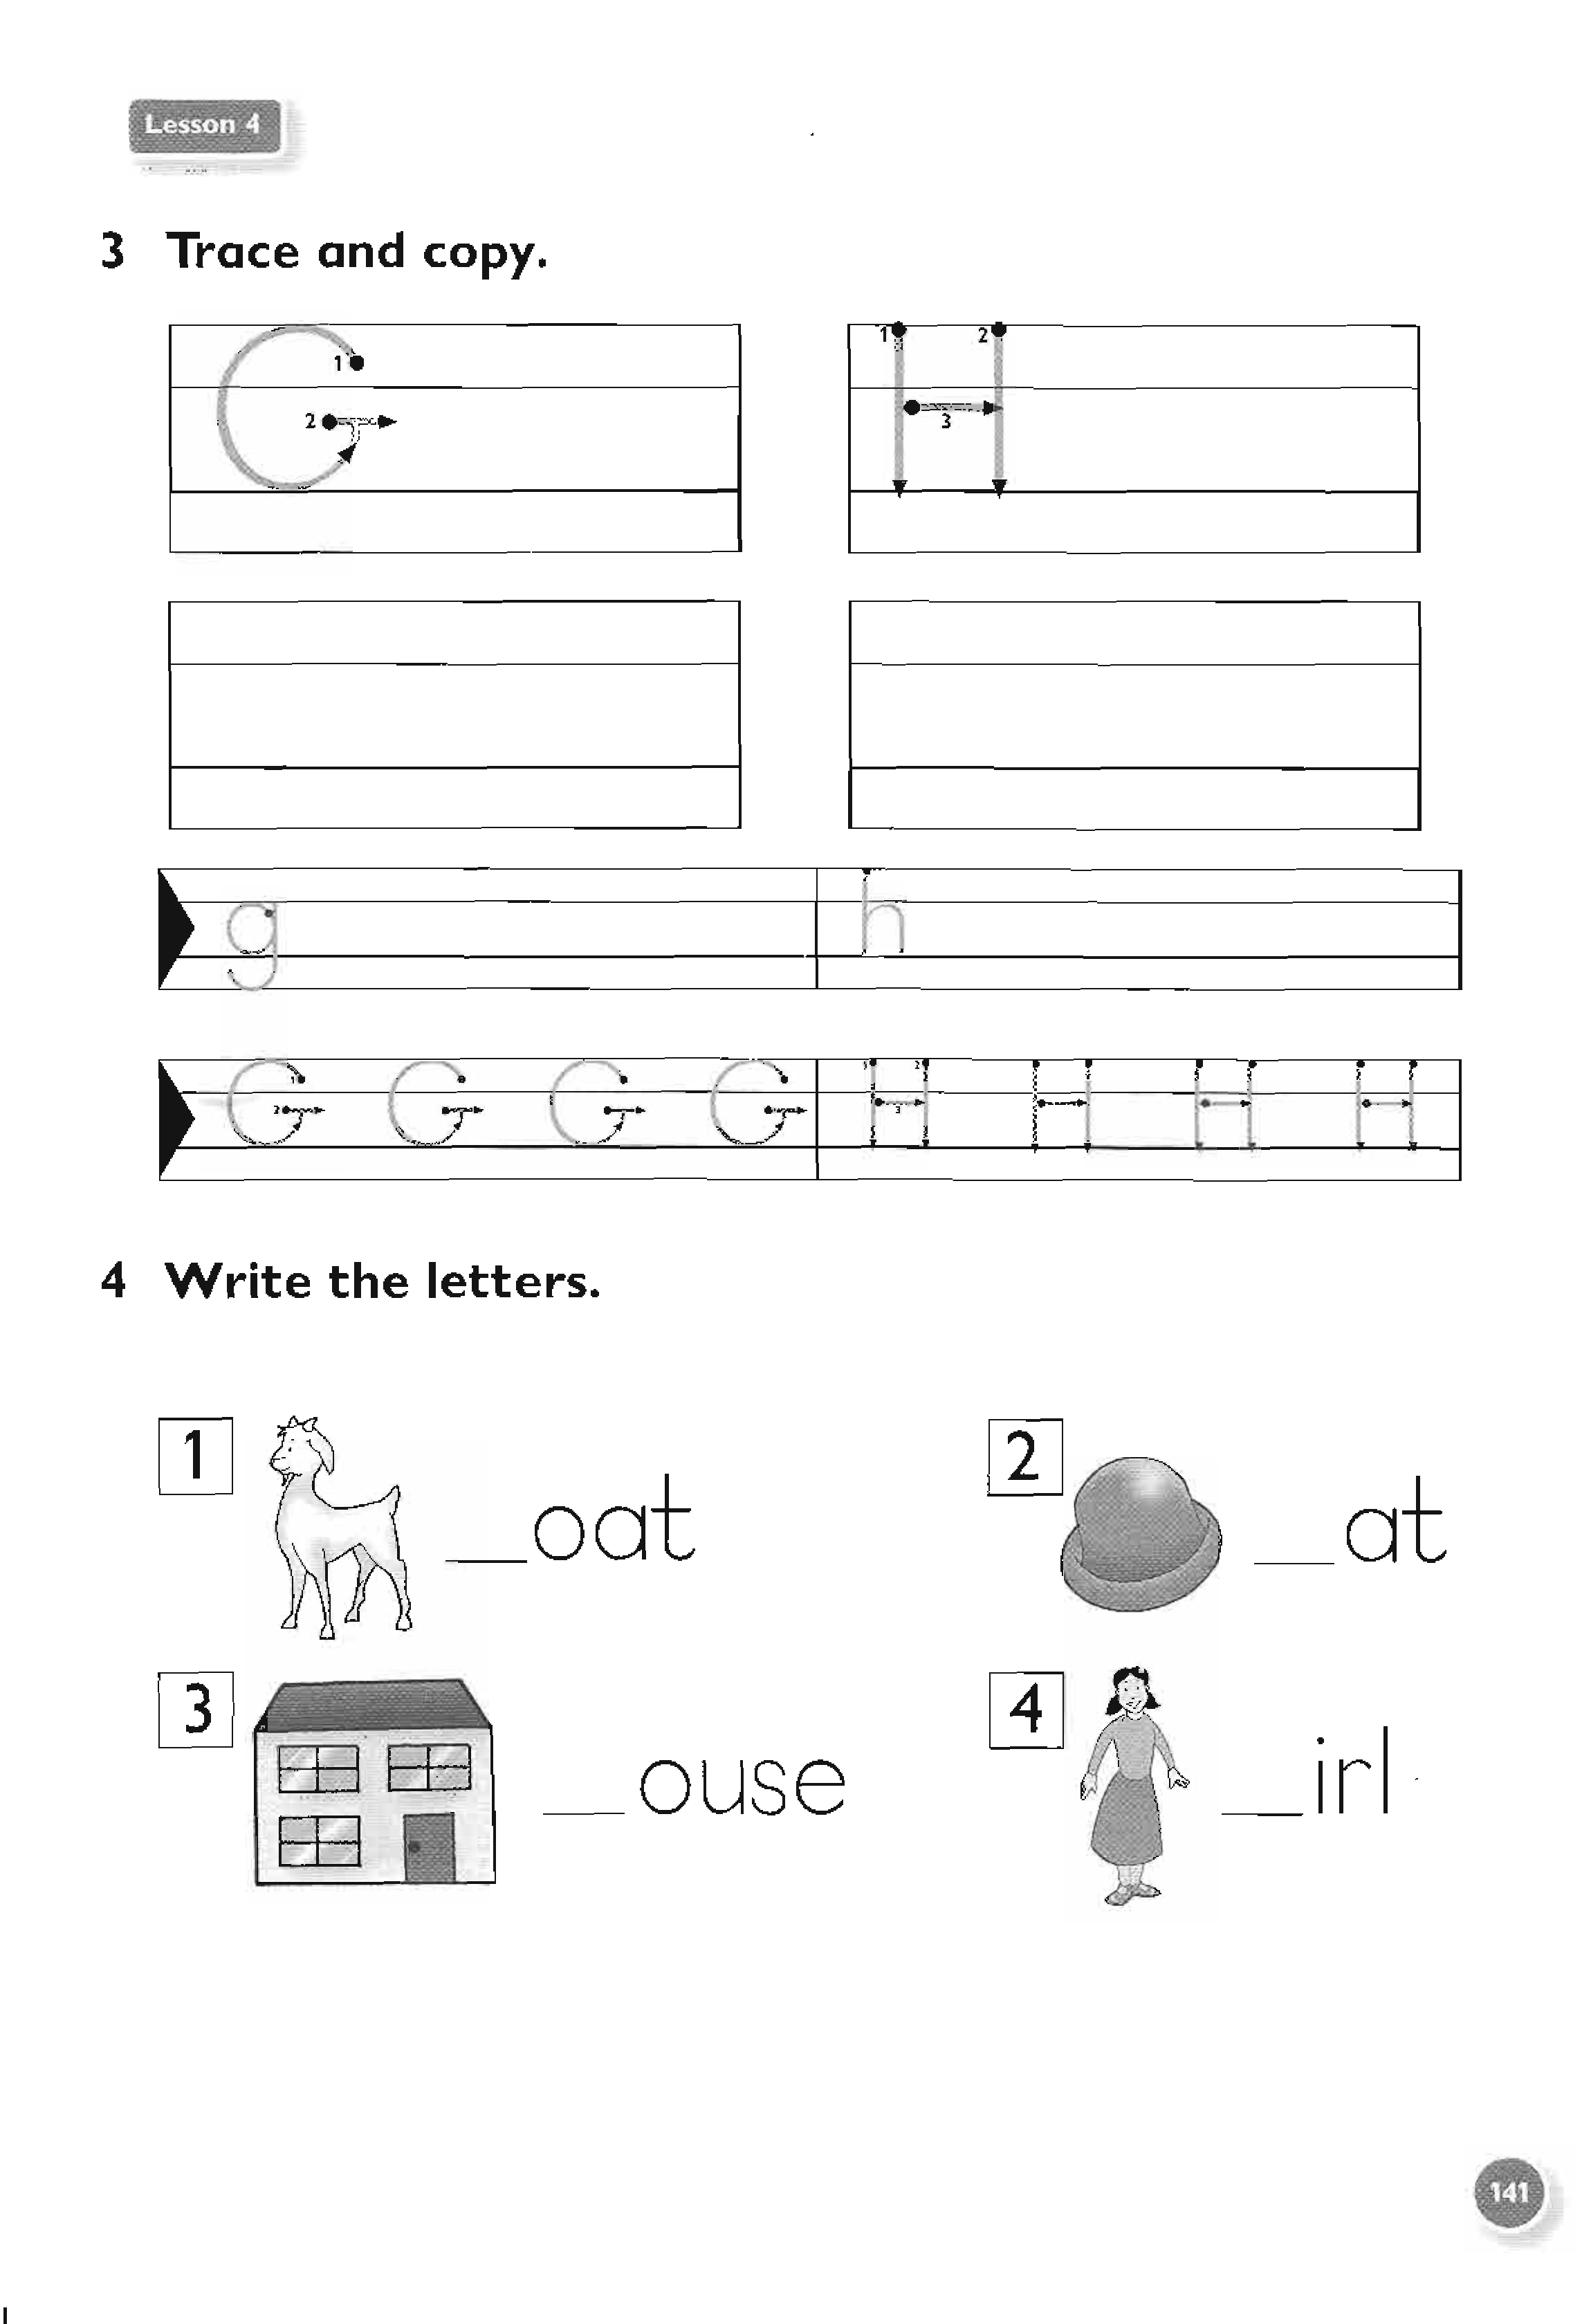 Lesson 4
3 Trace and copy.
G 1 2 H 1 2 3
g h
G 1 2 G G G H 1 2 3 H H H
4 Write the letters.
1 __oat 2 __at
3 __ouse 4 __irl
141